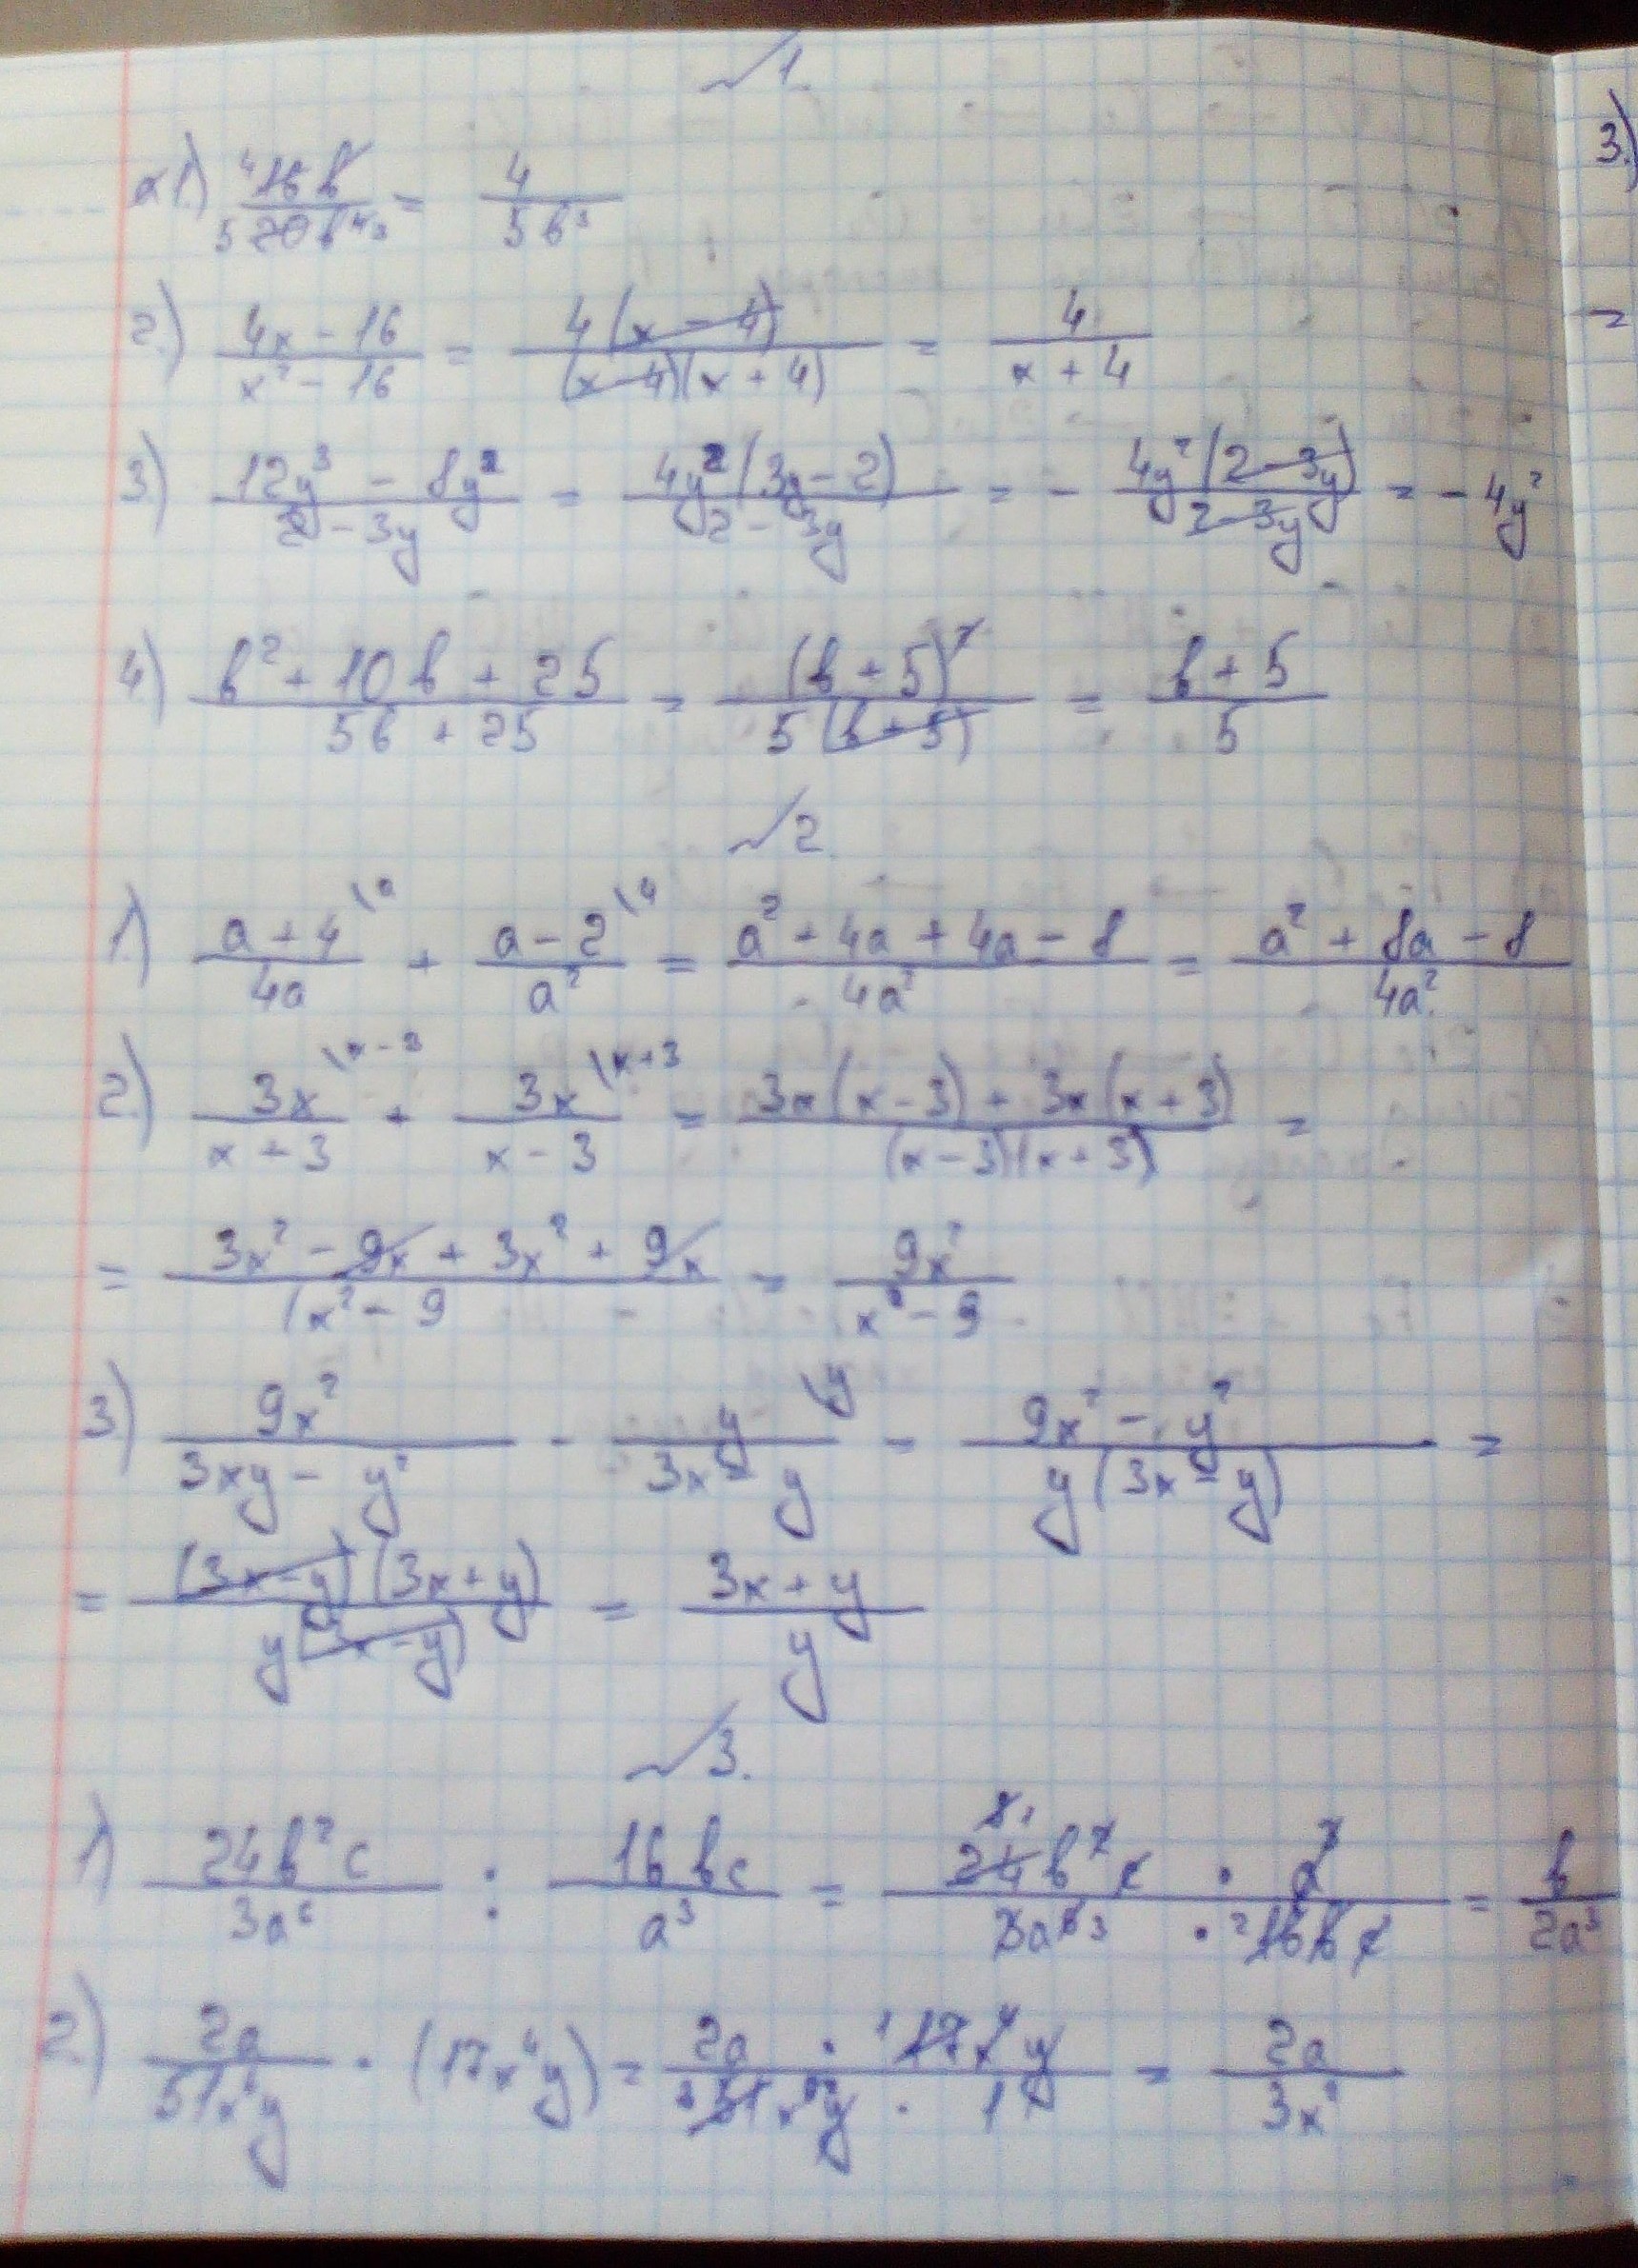 №1.
1.) 16b/20b⁴ = 4/5b³
2.) (4x - 16)/(x² - 16) = 4(x - 4)/(x - 4)(x + 4) = 4/(x + 4)
3.) (12y³ - 8y²)/(2 - 3y) = 4y²(3y - 2)/(2 - 3y) = - 4y²(2 - 3y)/(2 - 3y) = - 4y²
4.) (b² + 10b + 25)/(5b + 25) = (b + 5)²/5(b + 5) = (b + 5)/5
№2.
1.) (a + 4)/4a \a + (a - 2)/a² \4 = (a² + 4a + 4a - 8)/4a² = (a² + 8a - 8)/4a²
2.) 3x/(x + 3) \x - 3 + 3x/(x - 3) \x + 3 = (3x(x - 3) + 3x(x + 3))/(x - 3)(x + 3) =
= (3x² - 9x + 3x² + 9x)/(x² - 9 = 9x²/(x² - 9)
3.) 9x²/(3xy - y²) - y/(3x - y) \y = (9x² - y²)/y(3x - y) =
= (3x - y)(3x + y)/y(3x - y) = (3x + y)/y
№3.
1.) 24b²c/3a⁶ : 16bc/a³ = 24b²c · a³/3a⁶ · 16bc = b/2a³
2.) 2a/51x⁶y · (17x⁴y) = 2a · 17x⁴y/51x⁶y · 1 = 2a/3x²
3.)
=